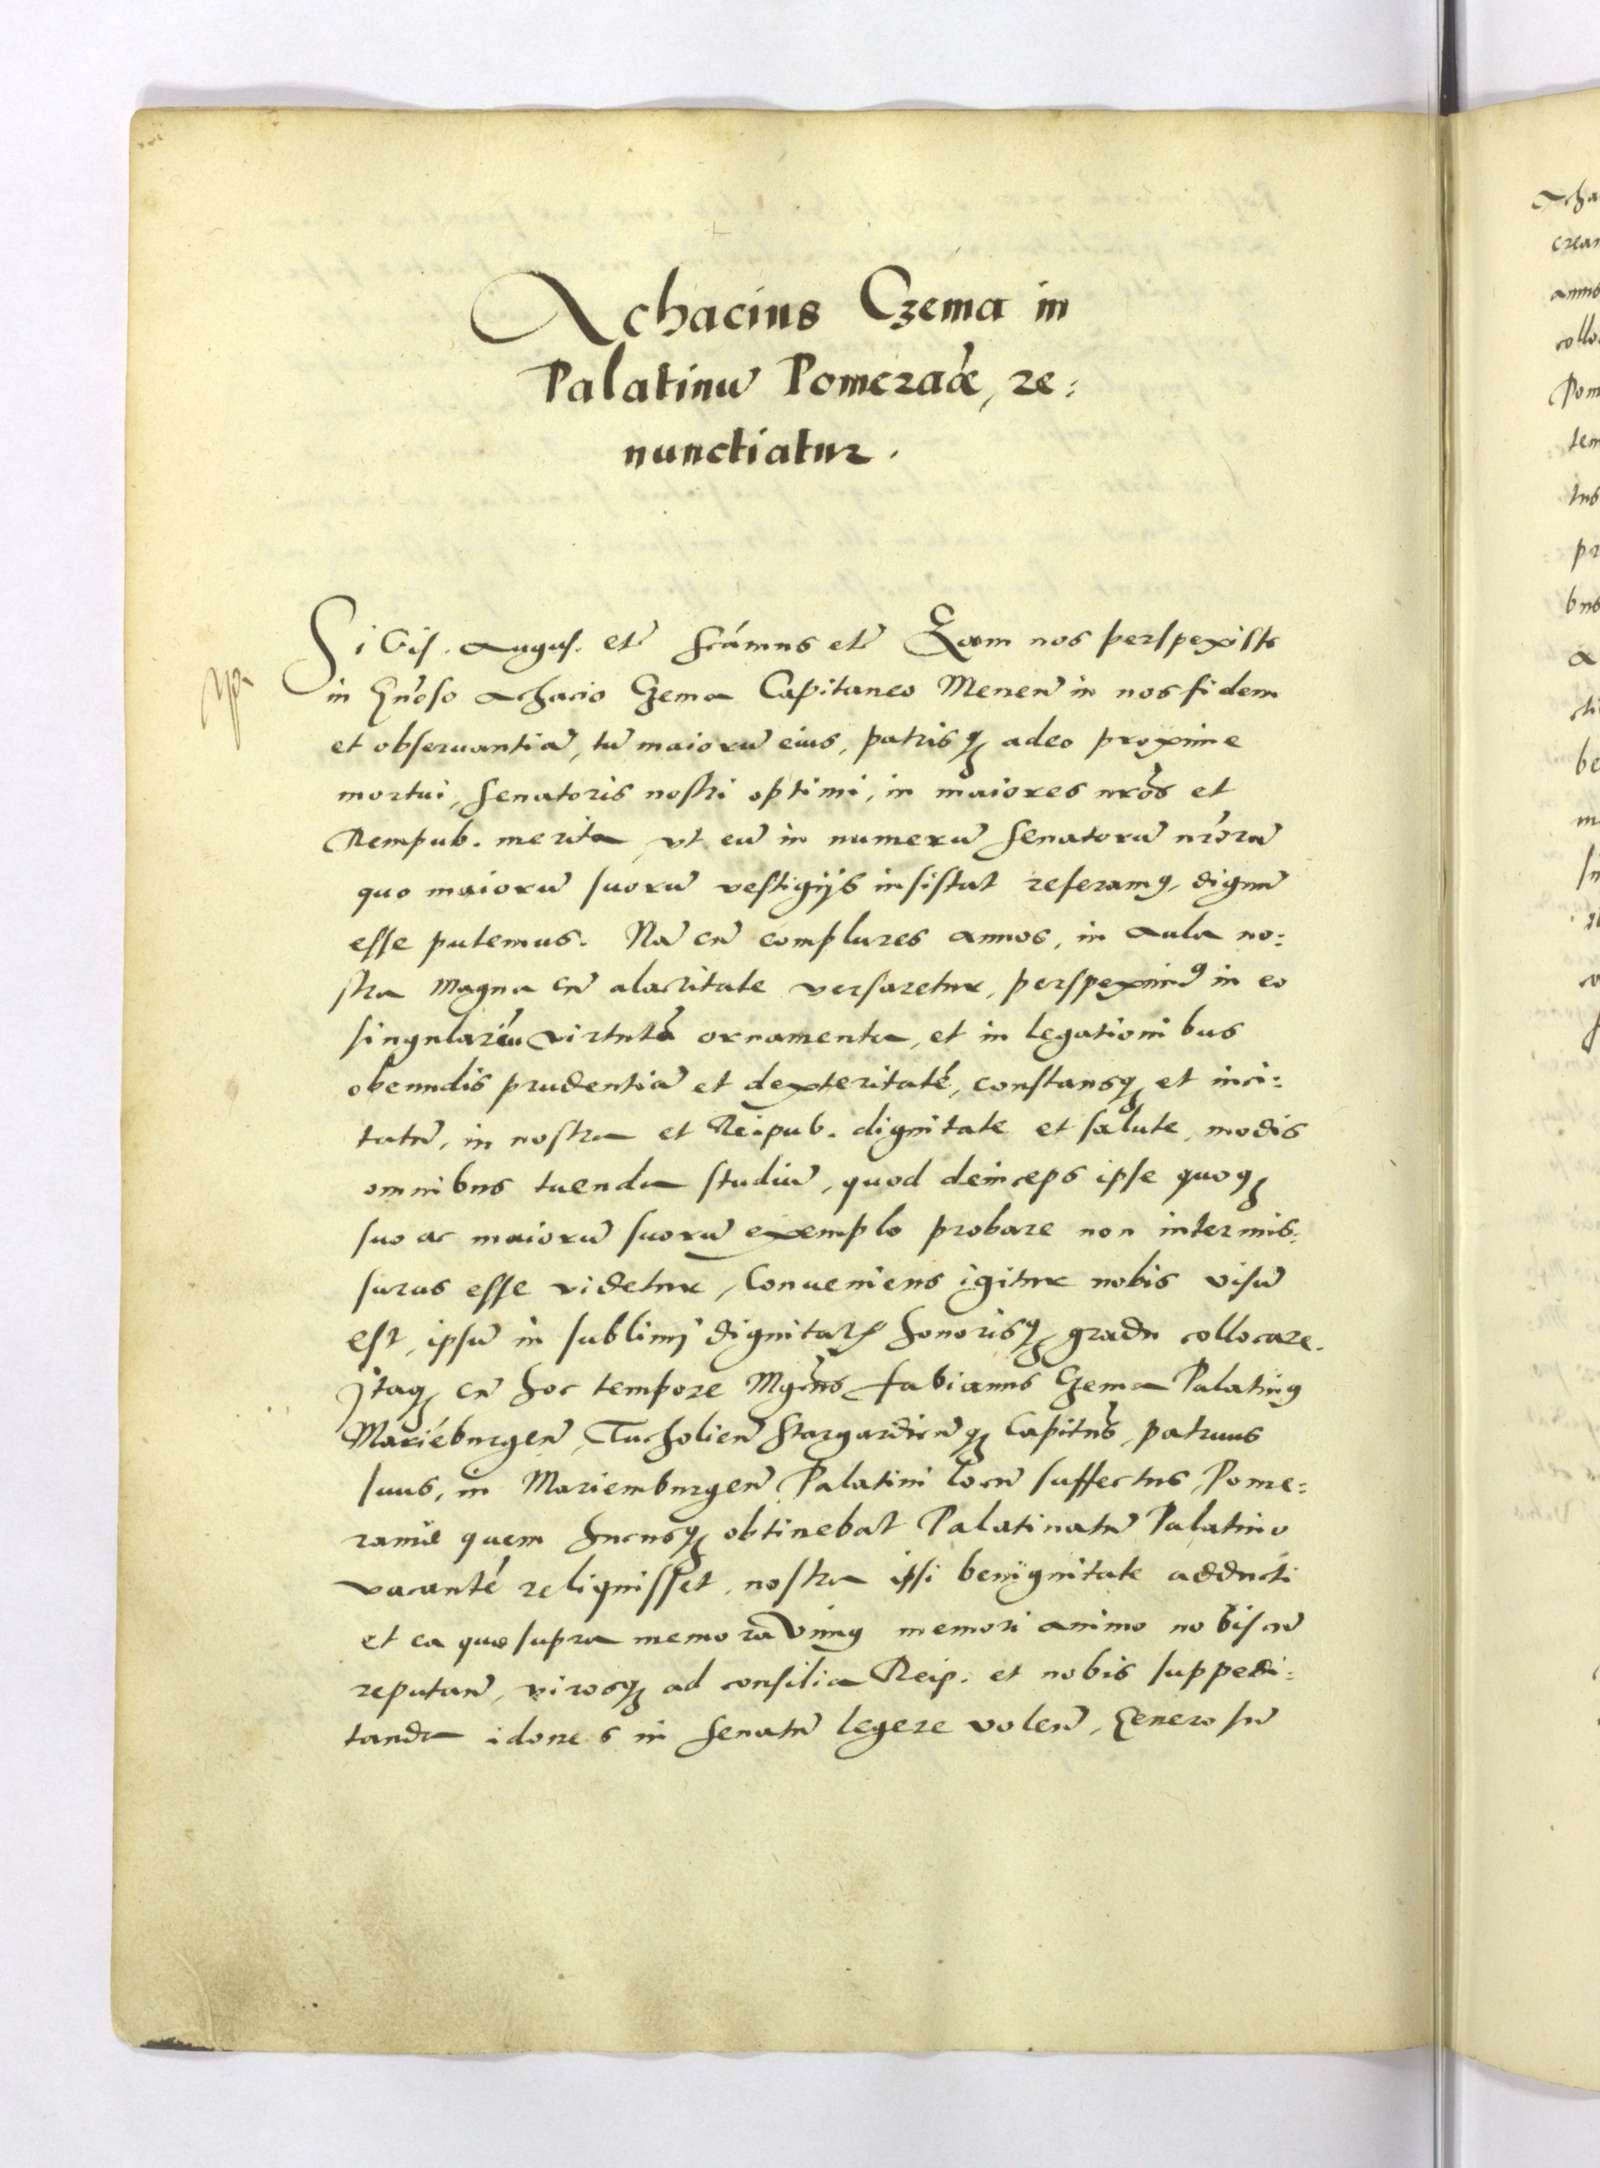 Achacius Czema in
Palatinū Pomeraǣ, re:
nunctiatur.
Sigis. Augus. etc̄ Scámus etc̄ Eam nos perspexisse
in Gn̄oso Achacio Czema Capitaneo Menen̄ in nos fidem
et obseruantiā, tū maiorū eius, patrisq; adeo proxime
mortui, senatoris nostri optimi, in maiores nr̄os et
Rempub. merita, vt eū in numerū senatorū nr̄orū
quo maiorū suorū vestigijs insistat referamq, dignū
esse putemus. Nā cū complures annos, in Aula no:
stra magna cū alacritate versaretur, perspeximq in eo
singulariū virtutū ornamenta, et in legationibus
obeundis prudentiā et dexteritatē, constansq; et inci:
tatū, in nostra et Reipub. dignitate et salute, modis
omnibus tuenda studiū, quod deinceps ipse quoq;
suo ac maiorū suorū exemplo probare non intermis:
surus esse videtur, Conueniens igitur nobis visū
est, ipsū in sublimi dignitatis honorisq; gradu collocare.
Itaq; cū hoc tempore Mgcūs Fabianus Czema Palatinq
Mariēburgen̄, Tucholien̄ Stargardien̄q; Capitn̄s, patruus
suus, in Mariemburgen̄ Palatini locū suffectus, Pome:
raniæ quem hucusq; obtinebat Palatinatū Palatino
vacantē reliquisset, nostra ipsi benignitate adducti
et ea quæ supra memorauimq memori animo nobiscū
reputan̄, virosq; ad consilia Reip. et nobis suppedi:
tanda idoneos in senatū legere volen̄, Generosū
Acha
crear
annos
collo
Pom
tem
tus
pr
bus
be